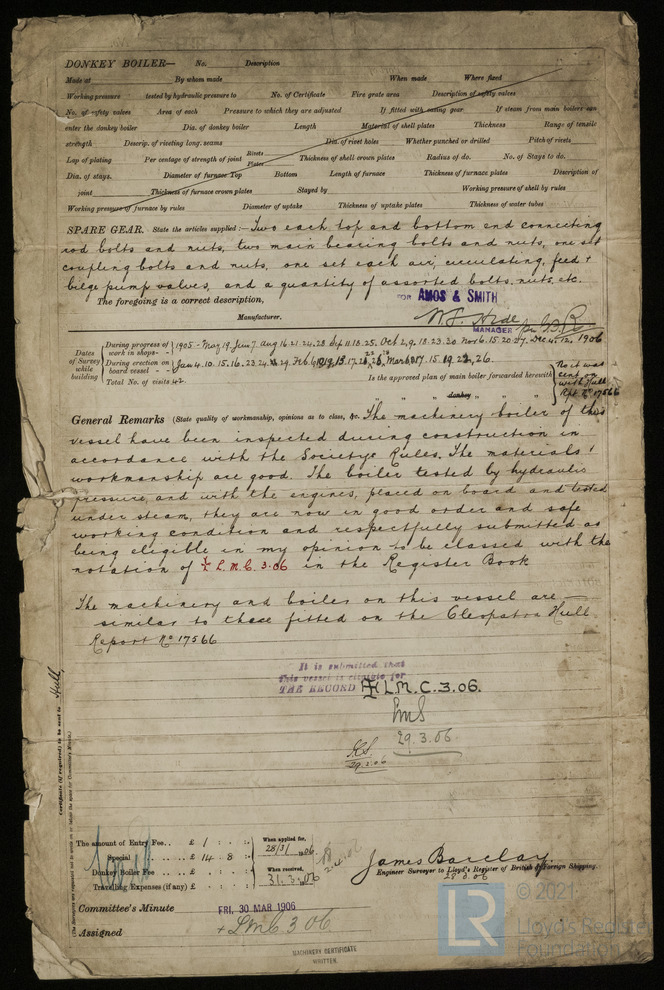 DONKEY BOILER— No. Description
Made at By whom made When made Where fixed
Working pressure tested by hydraulic pressure to No. of Certificate Fire grate area Description of safety valves
No. of safety valves Area of each Pressure to which they are adjusted If fitted with easing gear If steam from main boilers can
enter the donkey boiler Dia. of donkey boiler Length Material of shell plates Thickness Range of tensile
strength Descrip. of riveting long. seams Dia. of rivet holes Whether punched or drilled Pitch of rivets
Lap of plating Per centage of strength of joint Rivets Plates Thickness of shell crown plates Radius of do. No. of Stays to do.
Dia. of stays. Diameter of furnace Top Bottom Length of furnace Thickness of furnace plates Description of
joint Thickness of furnace crown plates Stayed by Working pressure of shell by rules
Working pressure of furnace by rules Diameter of uptake Thickness of uptake plates Thickness of water tubes
SPARE GEAR. State the articles supplied:— Two each top and bottom end connecting
rod bolts and nuts, two main bearing bolts and nuts, one set
coupling bolts and nuts, one set each air, circulating, feed +
bilge pump valves, and a quantity of assorted bolts, nuts, etc.
The foregoing is a correct description, FOR AMOS & SMITH
Manufacturer. MANAGER
Dates of Survey while building
During progress of work in shops - - 1905 - May 19. Jun 7. Aug 16. 21. 24. 28 Sep 11. 18. 25. Oct 2. 9. 18. 23. 30 Nov 6. 15. 20. 27. Dec 4. 12. 1906
During erection on board vessel - - Jan 4. 10. 15. 16. 23. 24. 29. Feb 6
Total No. of visits 42
Is the approved plan of main boiler forwarded herewith No it was sent on with Hull Rpt. No 17566
" " " donkey " " "
General Remarks (State quality of workmanship, opinions as to class, &c. The machinery boiler of this
vessel have been inspected during construction in
accordance with the Societys Rules. The materials &
workmanship are good. The boiler tested by hydraulic
pressure, and with the engines, placed on board and tested
under steam, they are now in good order and safe
working condition and respectfully submitted as
being eligible in my opinion to be classed with the
notation of + L.M.C. 3.06 in the Register Book
The machinery and boiler on this vessel are
similar to those fitted on the Cleopatra Hull
Report No 17566
It is submitted that
this vessel is eligible for
THE RECORD + L.M.C. 3.06.
29.3.06
29.3.06
Certificate (if required) to be sent to Hull,
The amount of Entry Fee . . £ 1 : : When applied for, 28/3/1906
Special . . . . £ 14 : 8 :
Donkey Boiler Fee . . . £ : : When received, 31.3.06
Travelling Expenses (if any) £ : :
James Barclay
Engineer Surveyor to Lloyd's Register of British & Foreign Shipping.
Committee's Minute FRI. 30 MAR 1906
Assigned + LMC 3 06
MACHINERY CERTIFICATE
WRITTEN.
LR © 2021
Lloyd's Register
Foundation